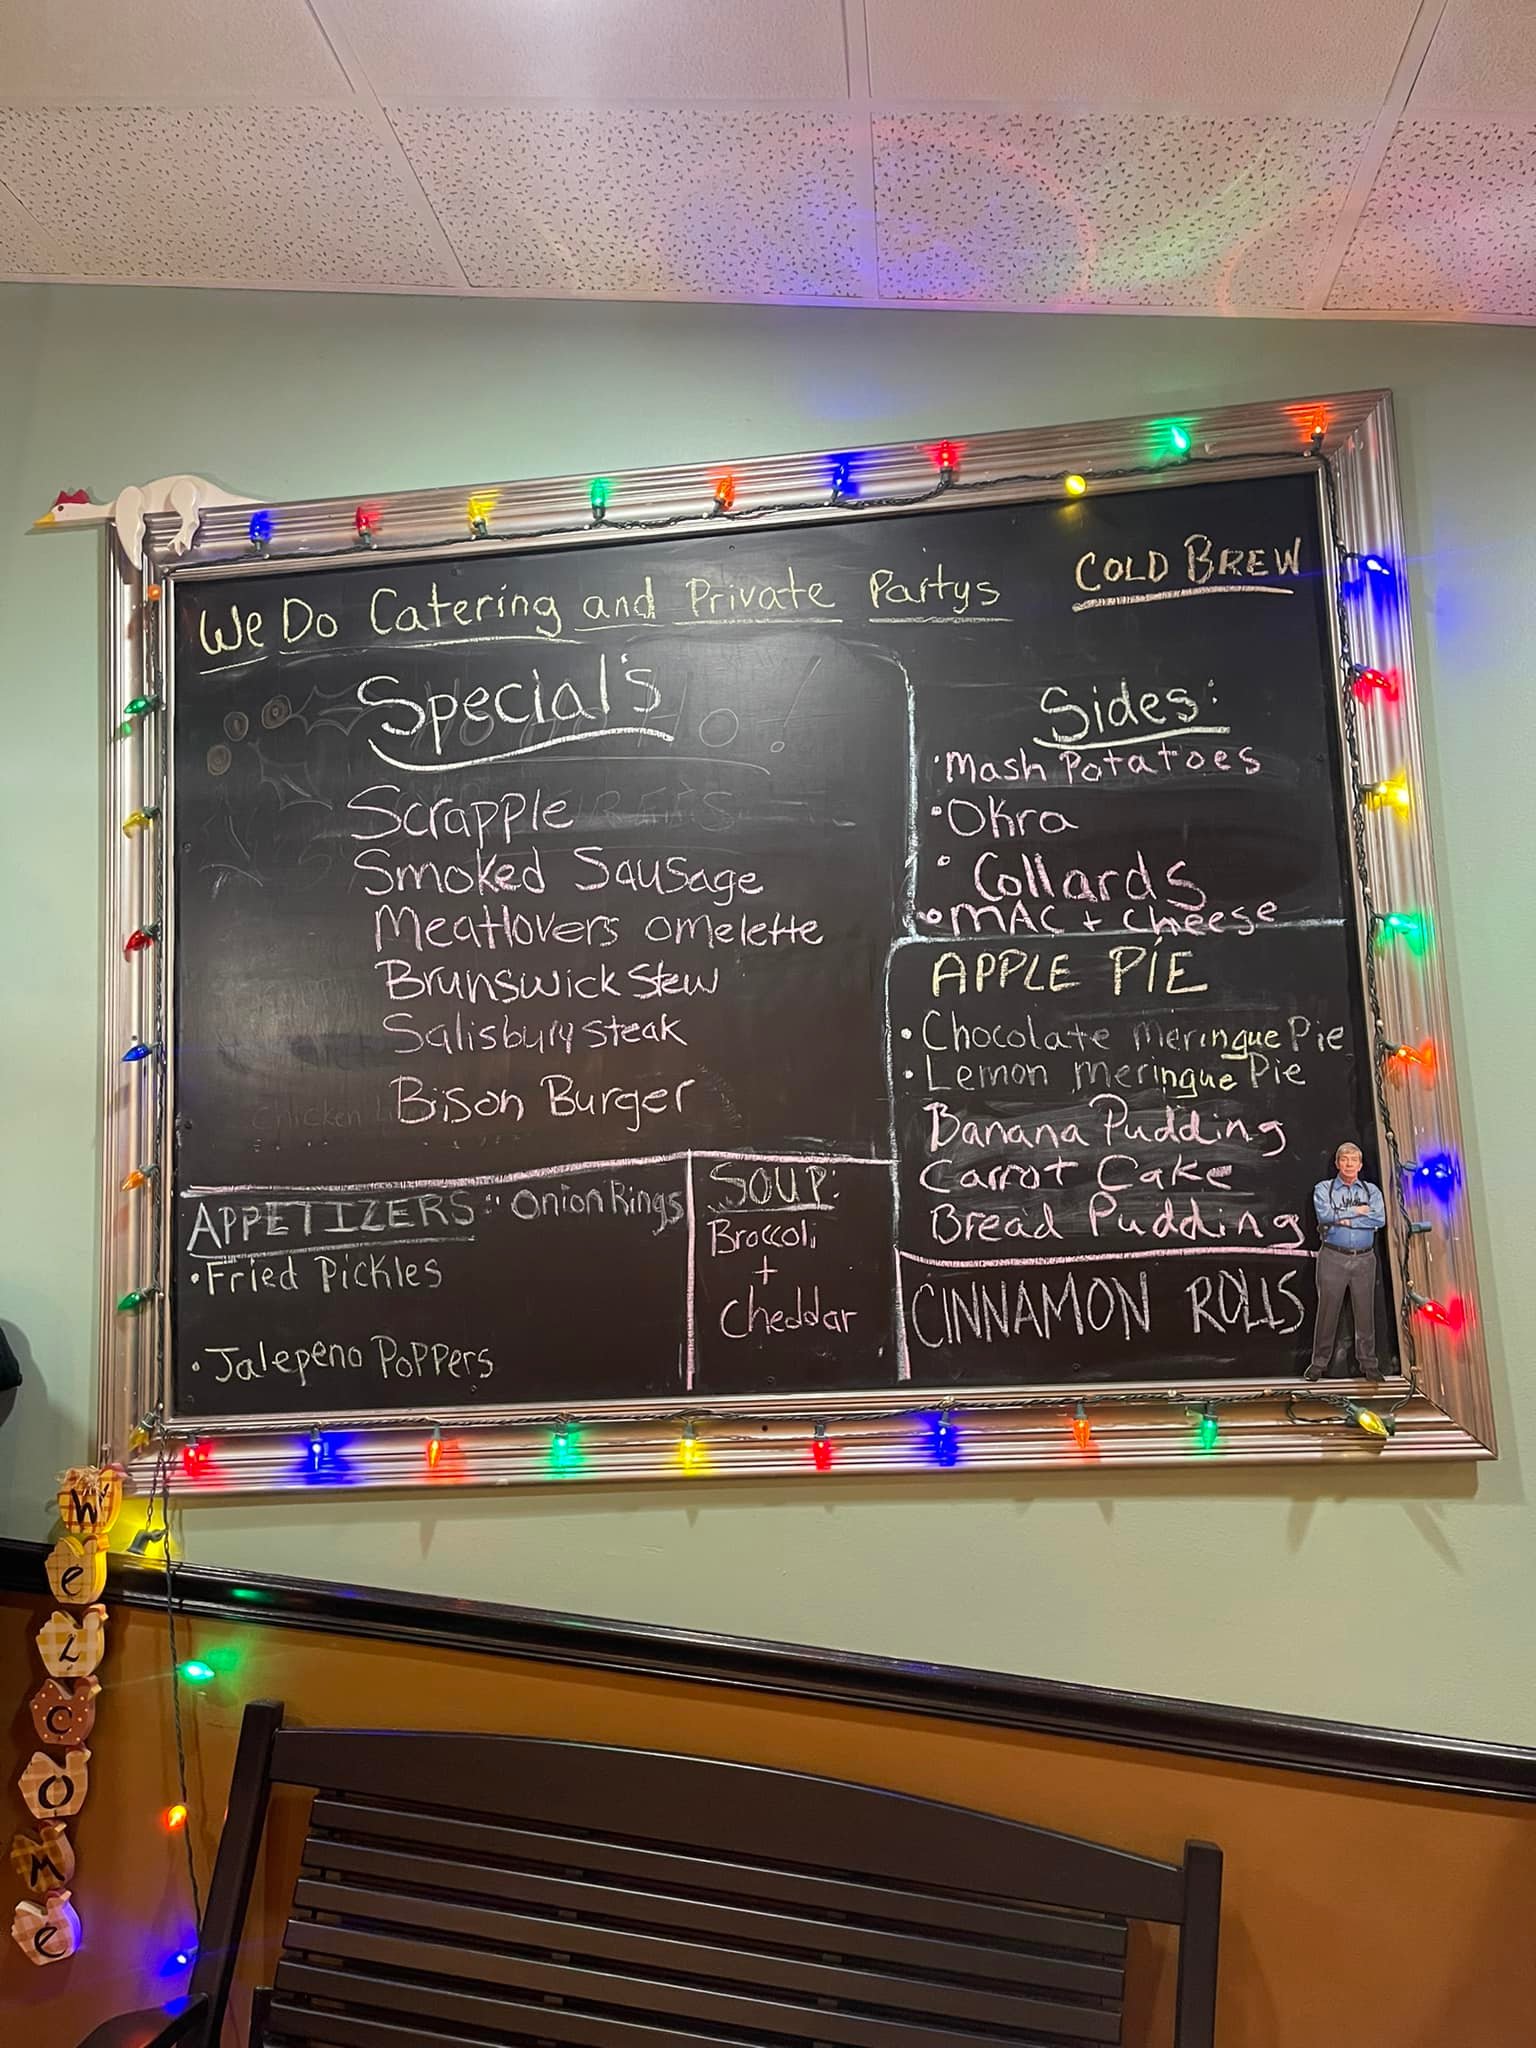 We Do Catering and Private Partys
COLD BREW
Special's
Scrapple
Smoked Sausage
Meatlovers omelette
Brunswick Stew
Salisbury steak
Bison Burger
Sides:
• Mash Potatoes
• Okra
• Collards
• MAC + Cheese
APPLE PIE
• Chocolate meringue Pie
• Lemon meringue Pie
Banana Pudding
Carrot Cake
Bread Pudding
CINNAMON ROLLS
APPETIZERS: • Onion Rings
• Fried Pickles
• Jalepeno Poppers
SOUP:
Broccoli
+
Cheddar
WeLCOMe